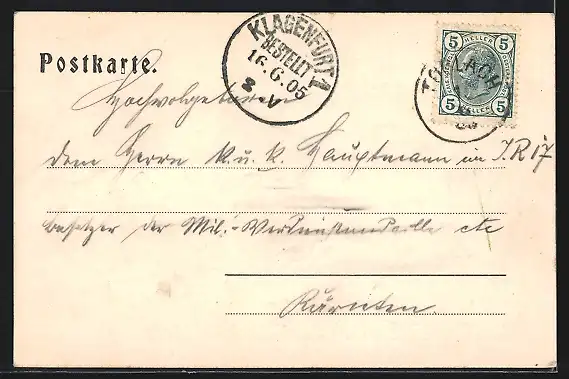 Postkarte.
KLAGENFURT 1
BESTELLT
16.6.05
8 V
5 HELLER 5
5 HELLER 5
Hochwolgeboren
dem Herrn k. u. k. Hauptmann im I.R 17
besitzer der Mil.-Verdienstmedaille etc
Kärnten.